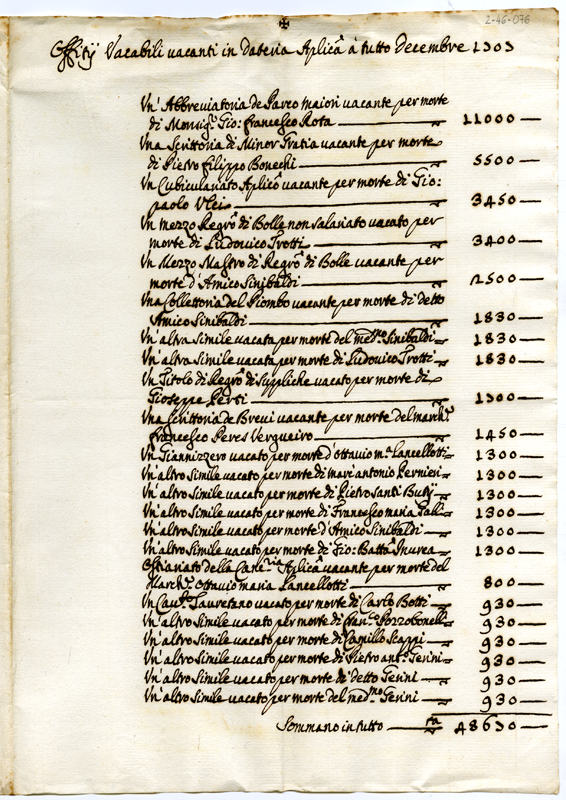 2-46-076
✠
Offitij Vacabili vacanti in dateria Aplicã à tutto Decembre 1303
Un' Abbreviatoria de Parco maiori vacante per morte
di Monsig.r Gio: francesco Rota — 11000 —
Una Scrittoria di Minor Gratia vacante per morte
di Pietro filippo Bonechi — 5500 —
Un Cubicularato Aplicõ vacante per morte di Gio:
paolo — 3450 —
Un mezzo Regrõ di Bolle non salariato vacato per
morte di Ludovico Trotti — 3400 —
Un Mezzo Mastro di Regrõ di Bolle vacante per
morte d'Amico Sinibaldi — 2500 —
Una Collettoria del Piombo vacante per morte di detto
Amico Sinibaldi — 1830 —
Un' altra simile vacata per morte del med.mo Sinibaldi = 1830 —
Un' altra simile vacata per morte di Ludovico Trotti = 1830 —
Un Titolo di Regrõ di Suppliche vacato per morte di
Gioseppe Perti — 1300 —
Una Scrittoria de Brevi vacante per morte del march.e
francesco Peres Vergueiro — 1450 —
Un Giannizzero vacato per morte d'ottavio m.a Lancellotti = 1300 —
Un' altro simile vacato per morte di marc'antonio Pernieri = 1300 —
Un' altro simile vacato per morte di Pietro Santi Butij = 1300 —
Un' altro simile vacato per morte di Francesco maria = 1300 —
Un' altro simile vacato per morte d'Amico Sinibaldi — 1300 —
Un' altro simile vacato per morte di Gio: Batta = 1300 —
Ostianato della Aplicã vacante per morte del
March.e ottavio maria Lancellotti — 800 —
Un Cau.to Lauretano vacato per morte di Carlo Botti — 930 —
Un' altro simile vacato per morte di fran.co Pozzobonelli = 930 —
Un' altro simile vacato per morte di Camillo Scappi — 930 —
Un' altro simile vacato per morte di Pietro ant.o Gerini = 930 —
Un' altro simile vacato per morte di detto Gerini — 930 —
Un' altro simile vacato per morte del med.mo Gerini — 930 —
Sommano in tutto — 48630 —